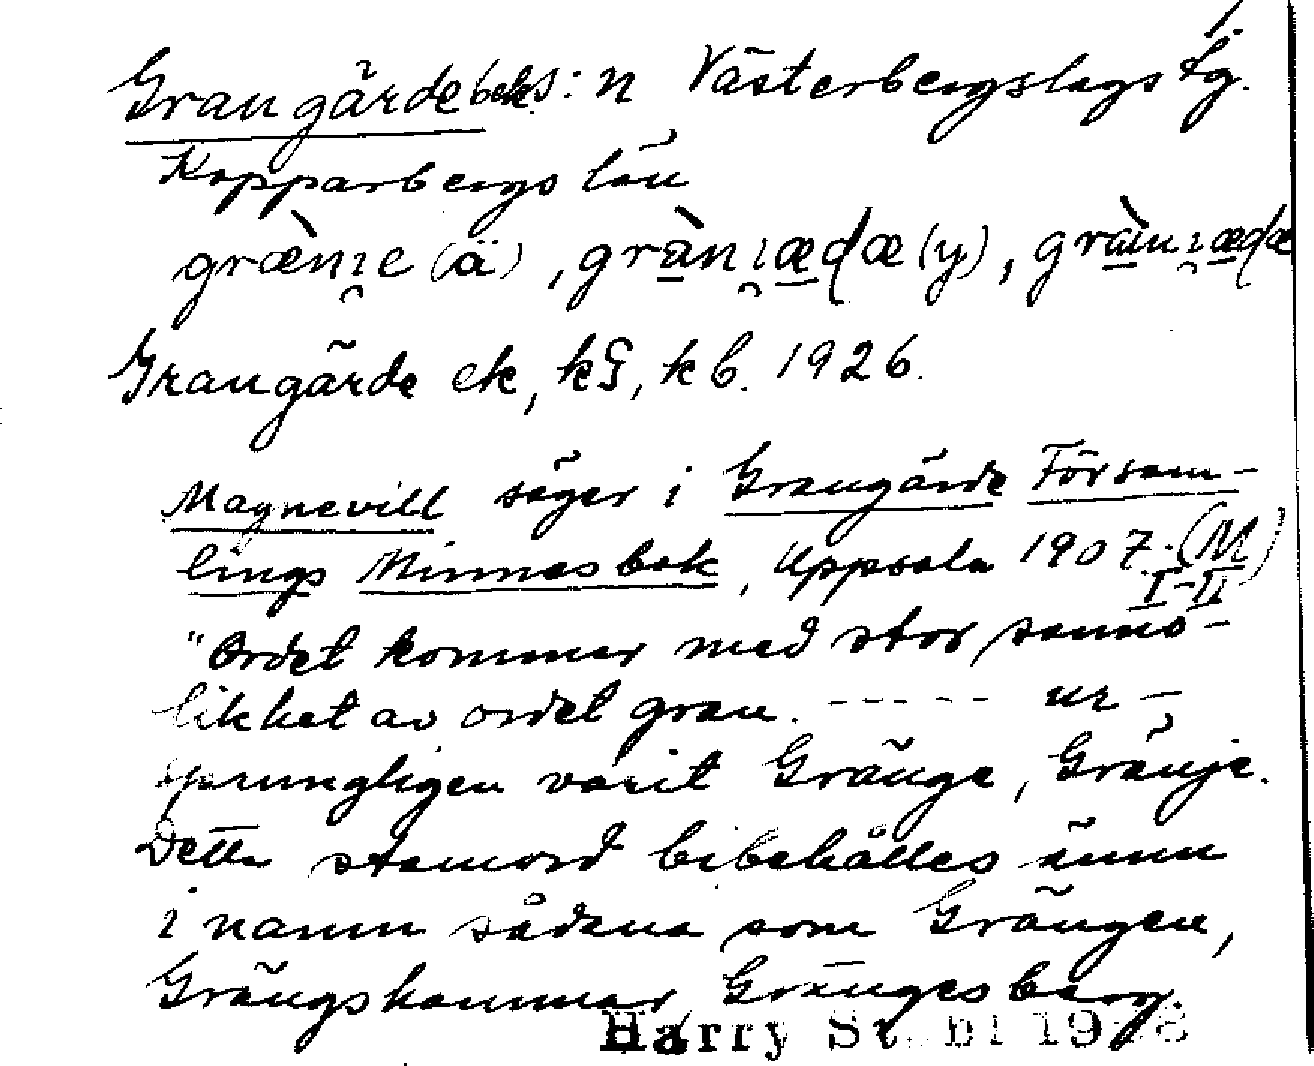 Grangärde beks: n Västerbergslags tg.
Kopparbergs län
Grangärde ek, kG, kb. 1926.
Magnevill säger i Grangärde Försam-
lings Minnesbok, Uppsala 1907. (M I-II)
"Ordet kommer med stor sanno-
likhet av ordet gran. ----- ur-
sprungligen varit Gränge, Gränje.
Detta stamord bibehålles ännu
i namn sådana som Grängen,
Grängshammar, Grängesberg.
Harry